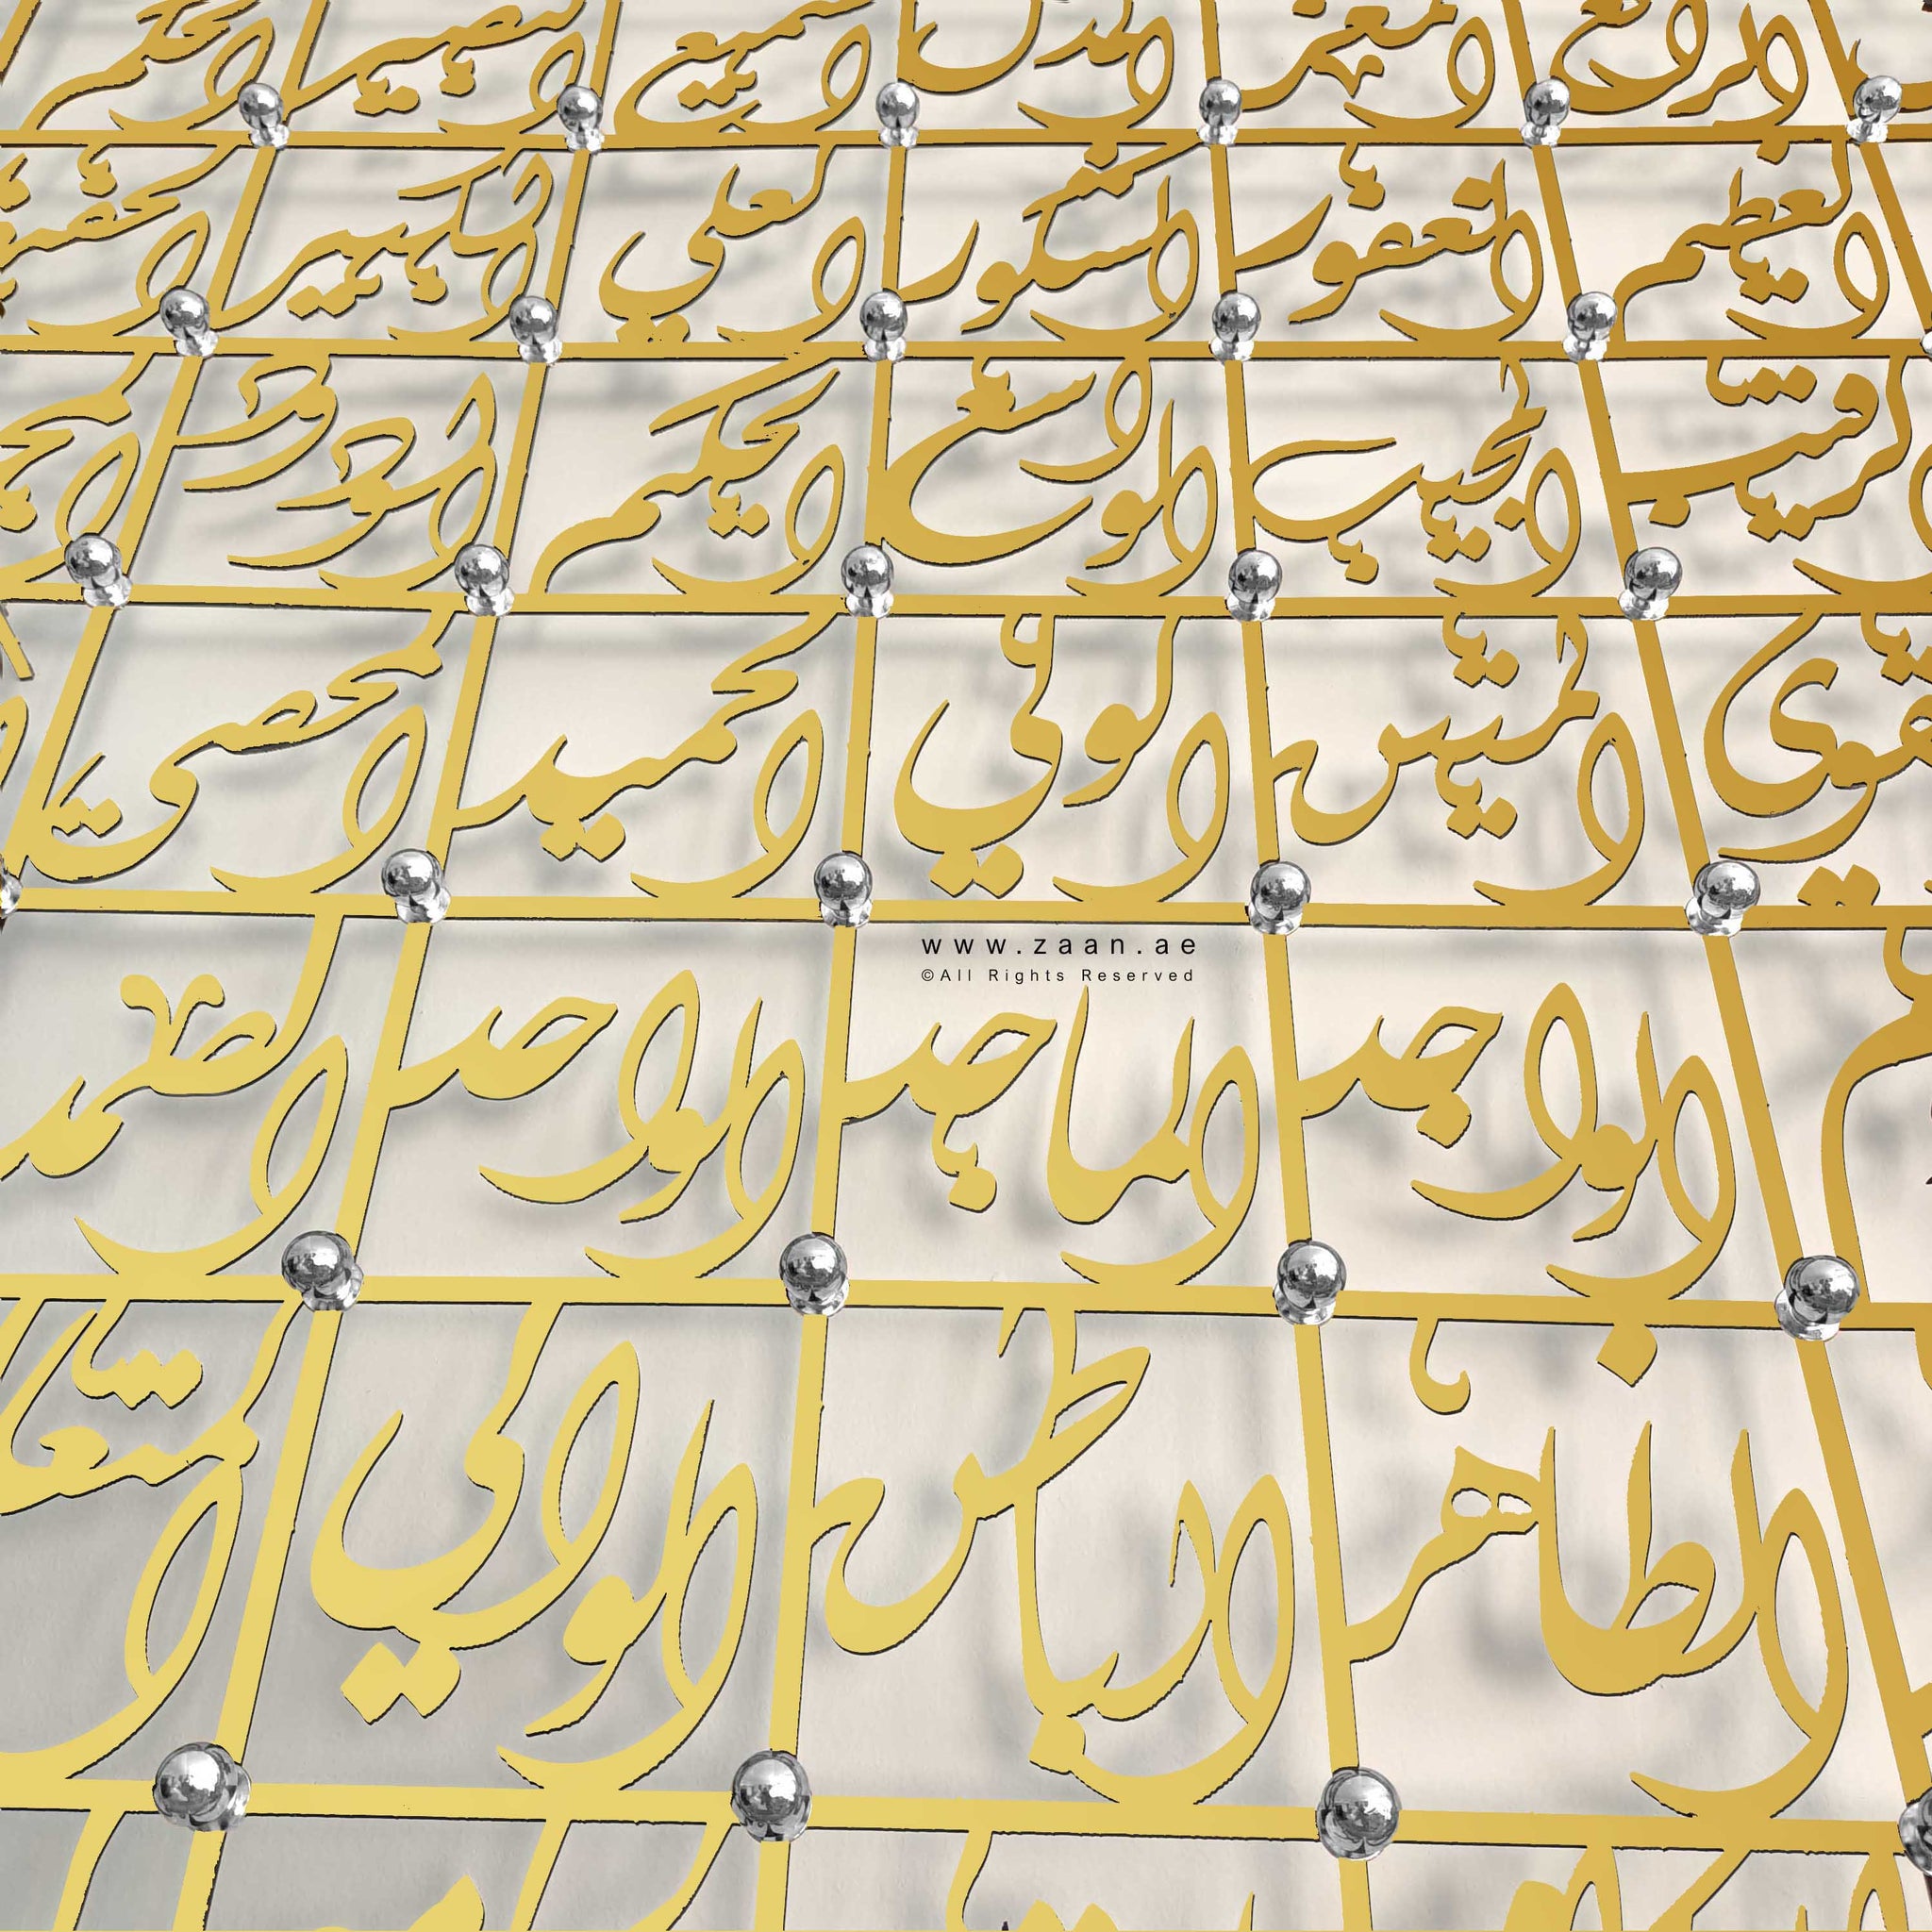 الرافع المعز المذل السميع البصير الحكم
العظيم الغفور الشكور العلي الكبير
الرقيب المجيب الواسع الحكيم الودود
القوي المتين الولي الحميد المحصي
www.zaan.ae
©All Rights Reserved
الواجد الماجد الواحد الصمد
الظاهر الباطن الوالي المتعا